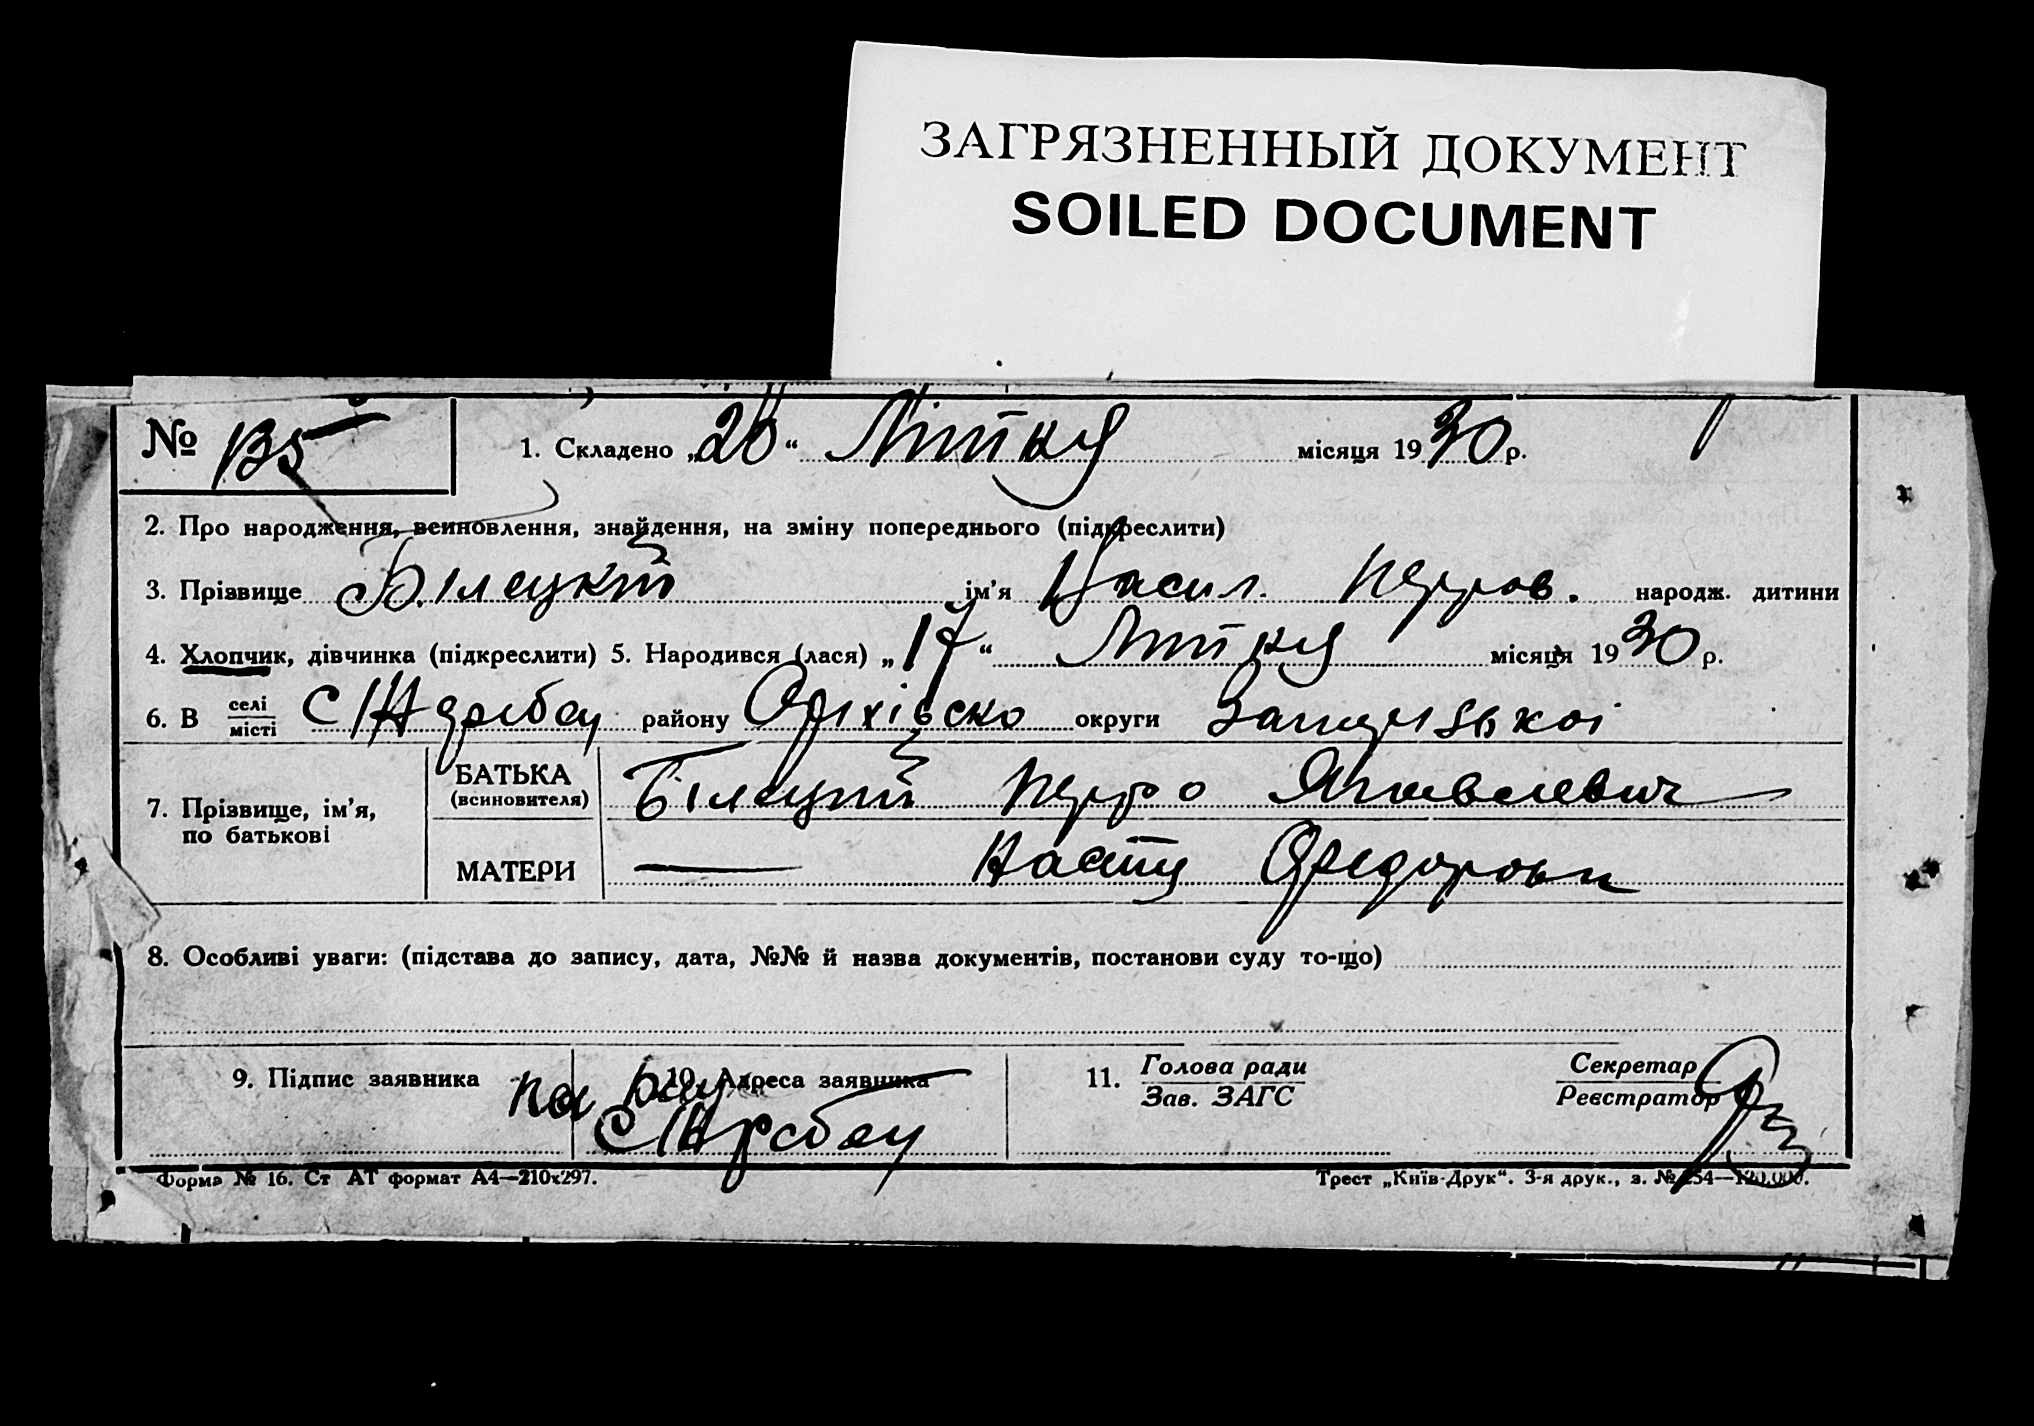 ЗАГРЯЗНЕННЫЙ ДОКУМЕНТ
SOILED DOCUMENT
№ 135
1. Складено „20“ Лютий місяця 1930 р.
2. Про народження, всиновлення, знайдення, на зміну попереднього (підкреслити)
3. Прізвище Білецкий ім'я Васил. Петров. народж. дитини
4. Хлопчик, дівчинка (підкреслити) 5. Народився (лася) „17“ місяця 1930 р.
6. В селі/місті с. району округи
7. Прізвище, ім'я, по батькові
БАТЬКА (всиновителя) Білецкий Петро Яковлевич
МАТЕРИ — Федоровн
8. Особливі уваги: (підстава до запису, дата, №№ й назва документів, постанови суду то-що)
9. Підпис заявника 10. Адреса заявника 11. Голова ради/Зав. ЗАГС Секретар/Реєстратор
Форма № 16. Ст АТ формат А4—210x297. Трест „Київ-Друк“. 3-я друк., з. № 254—120.000.